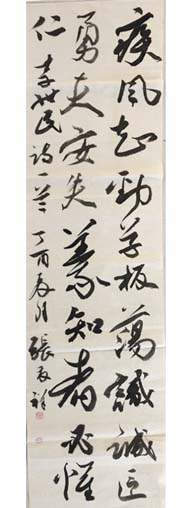 疾風知勁草板蕩識誠臣
勇夫安失義知者必懷
仁 李世民詩一首 丁酉春月 張友祥